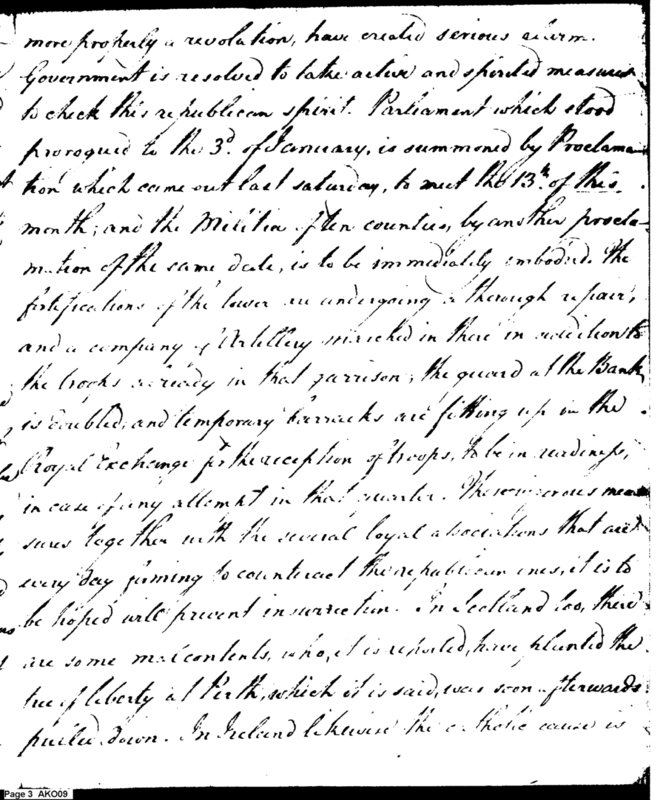 more properly a revolution, have created serious alarm.
Government is resolved to take active and spirited measures
to check this republican spirit. Parliament which stood
prorogued to the 3d. of January, is summoned by Proclama-
tion which came out last saturday, to meet the 13th. of this
month; and the Militia of ten counties, by another procla-
mation of the same date, is to be immediately embodied. The
fortifications of the tower are undergoing a thorough repair,
and a company of Artillery marched in there in addition to
the troops already in that garrison; the guard at the Bank
is doubled, and temporary barracks are fitting up in the
Royal Exchange for the reception of troops, to be in readiness,
in case of any attempt in that quarter. These vigorous mea
sures together with the several loyal associations that are
every day forming to counteract the republican ones, it is to
be hoped will prevent insurrection. In Scotland too, there
are some malcontents, who, it is reported, have planted the
tree of liberty at Perth, which it is said, was soon afterwards
pulled down. In Ireland likewise the catholic cause is
Page 3 AKO09